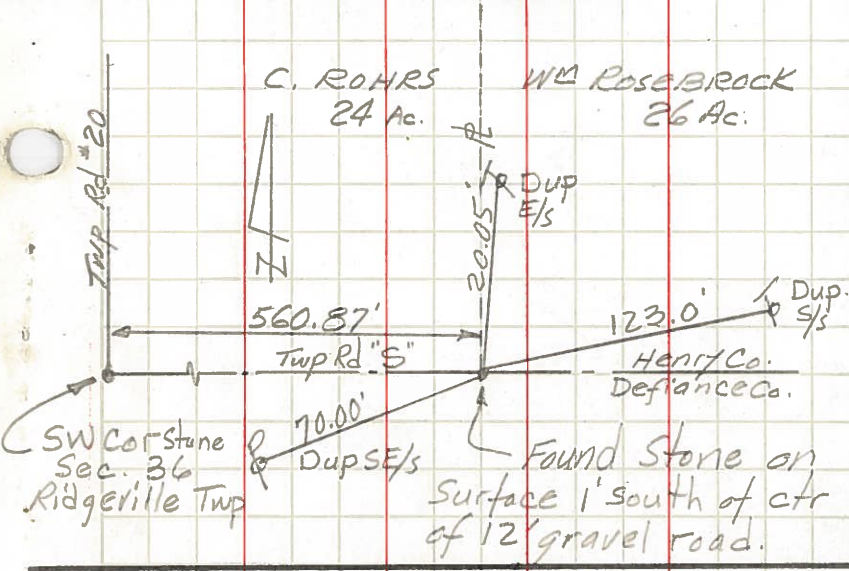 C. ROHRS
24 Ac.
WM ROSEBROCK
26 Ac.
Twp Rd #20
Dup
E/s
20.05'
N
560.87'
Twp Rd "S"
123.0'
Dup.
S/s
Henry Co.
Defiance Co.
70.00'
Dup SE/s
SW Cor Stone
Sec. 36
Ridgeville Twp
Found Stone on
Surface 1' South of ctr
of 12' gravel road.